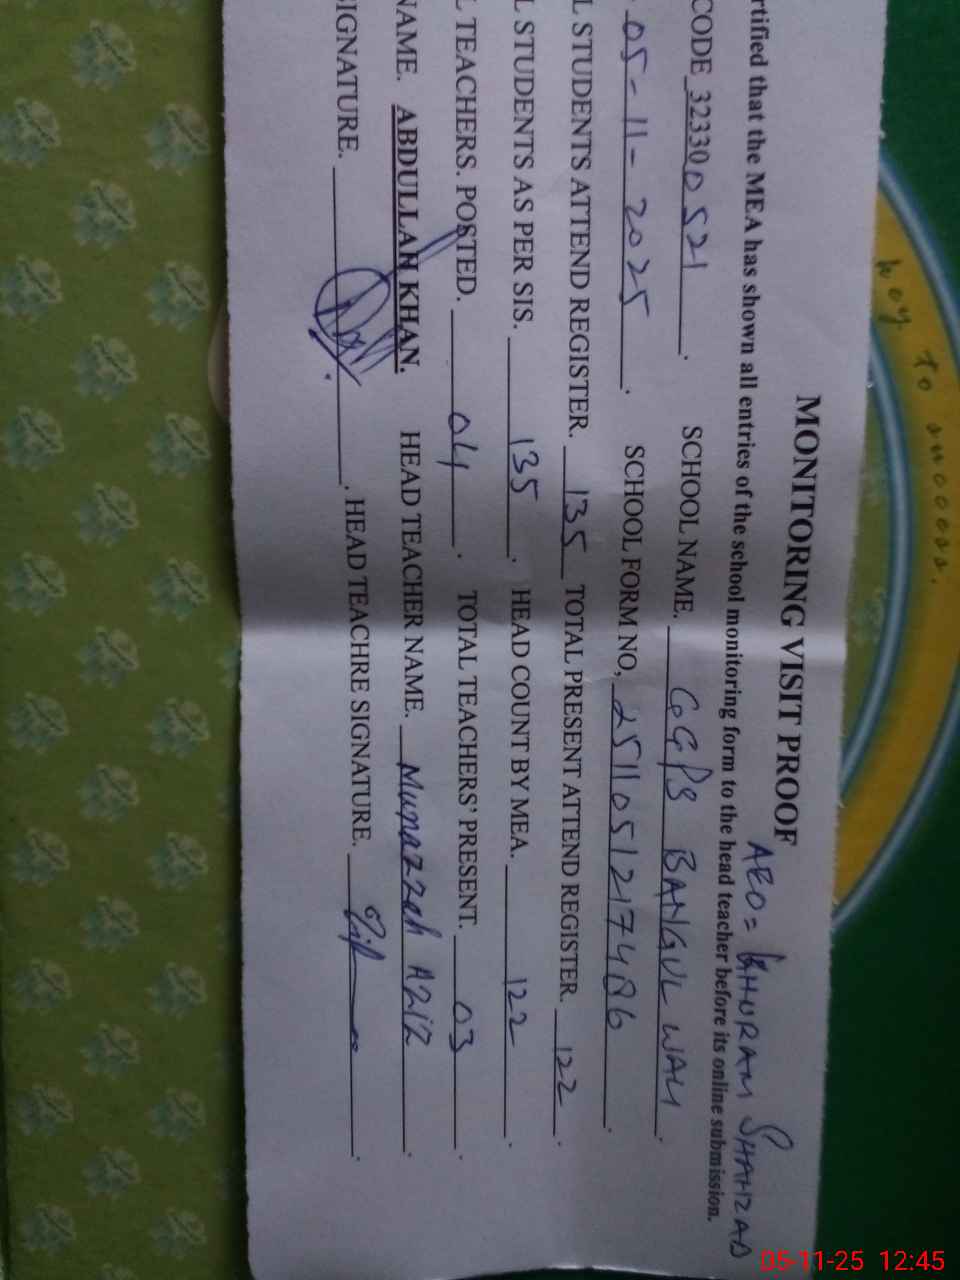 MONITORING VISIT PROOF
AEO = KHURAM SHAHZAD
rtified that the MEA has shown all entries of the school monitoring form to the head teacher before its online submission.
CODE 323300521. SCHOOL NAME. GGPS BANGUL WALI.
05-11-2025. SCHOOL FORM NO, 251105121217486.
L STUDENTS ATTEND REGISTER. 135 TOTAL PRESENT ATTEND REGISTER. 122.
L STUDENTS AS PER SIS. 135. HEAD COUNT BY MEA. 122.
L TEACHERS. POSTED. 04. TOTAL TEACHERS' PRESENT. 03.
NAME. ABDULLAH KHAN. HEAD TEACHER NAME. Munazzah Aziz.
SIGNATURE. . HEAD TEACHRE SIGNATURE. .
key to success.
05-11-25 12:45